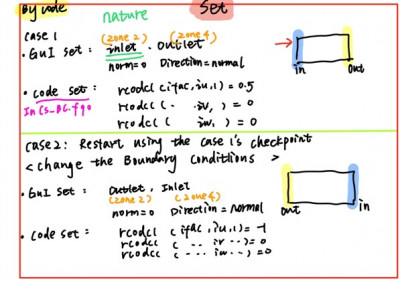 By code
nature
Set
case 1
(zone 2) (zone 4)
• GUI set : inlet . Outlet
norm=0 Direction=normal
in out
• Code set : rcodcl (ifac,iu,1) = 0.5
In CS_BC.f90 rcodcl ( . iv, ) = 0
rcodcl ( iw, ) = 0
Case 2: Restart using the case 1's checkpoint
< change the Boundary Conditions >
• GUI set : Outlet , Inlet
(zone 2) (zone 4)
norm=0 Direction = normal
out in
• Code set : rcodcl (ifac,iu,1) = -1
rcodcl ( ... iv ..) = 0
rcodcl ( - ... iw ..) = 0